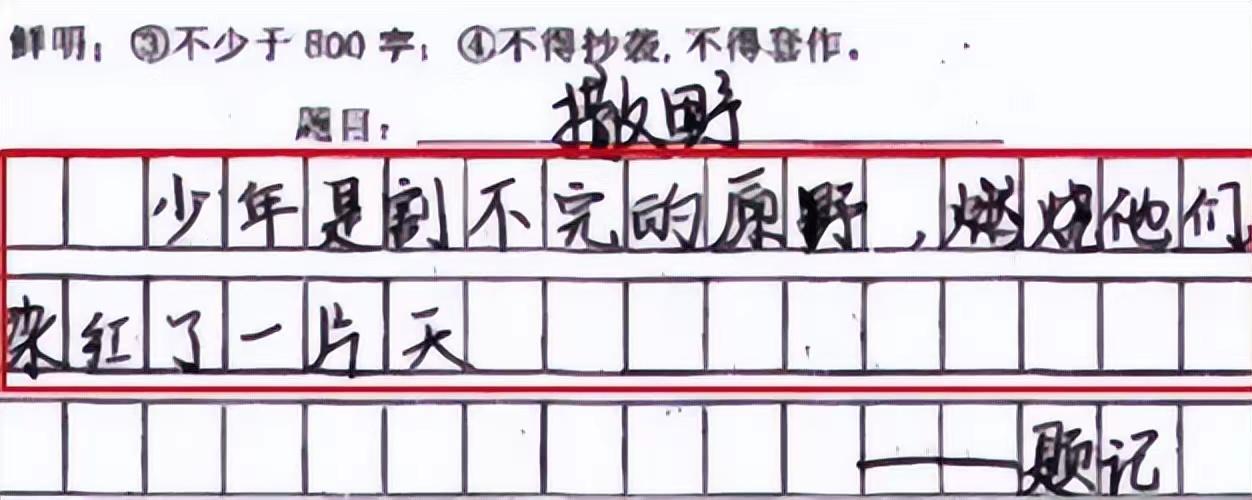 鲜明；③不少于800字；④不得抄袭，不得套作。
题目：撒野
少年是割不完的原野，燃烧他们，
染红了一片天
——题记